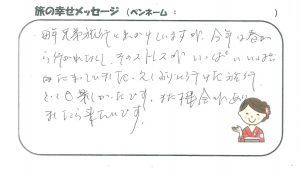 旅の幸せメッセージ（ペンネーム： ）
毎年兄弟旅行に出かけていますが、今年は春か
ら行かれなくし、そのストレスがいっぱいいっぱい
たまっていました。久しぶりに行けた旅行
とても楽しかったです。また機会があり
ましたら来たいです。